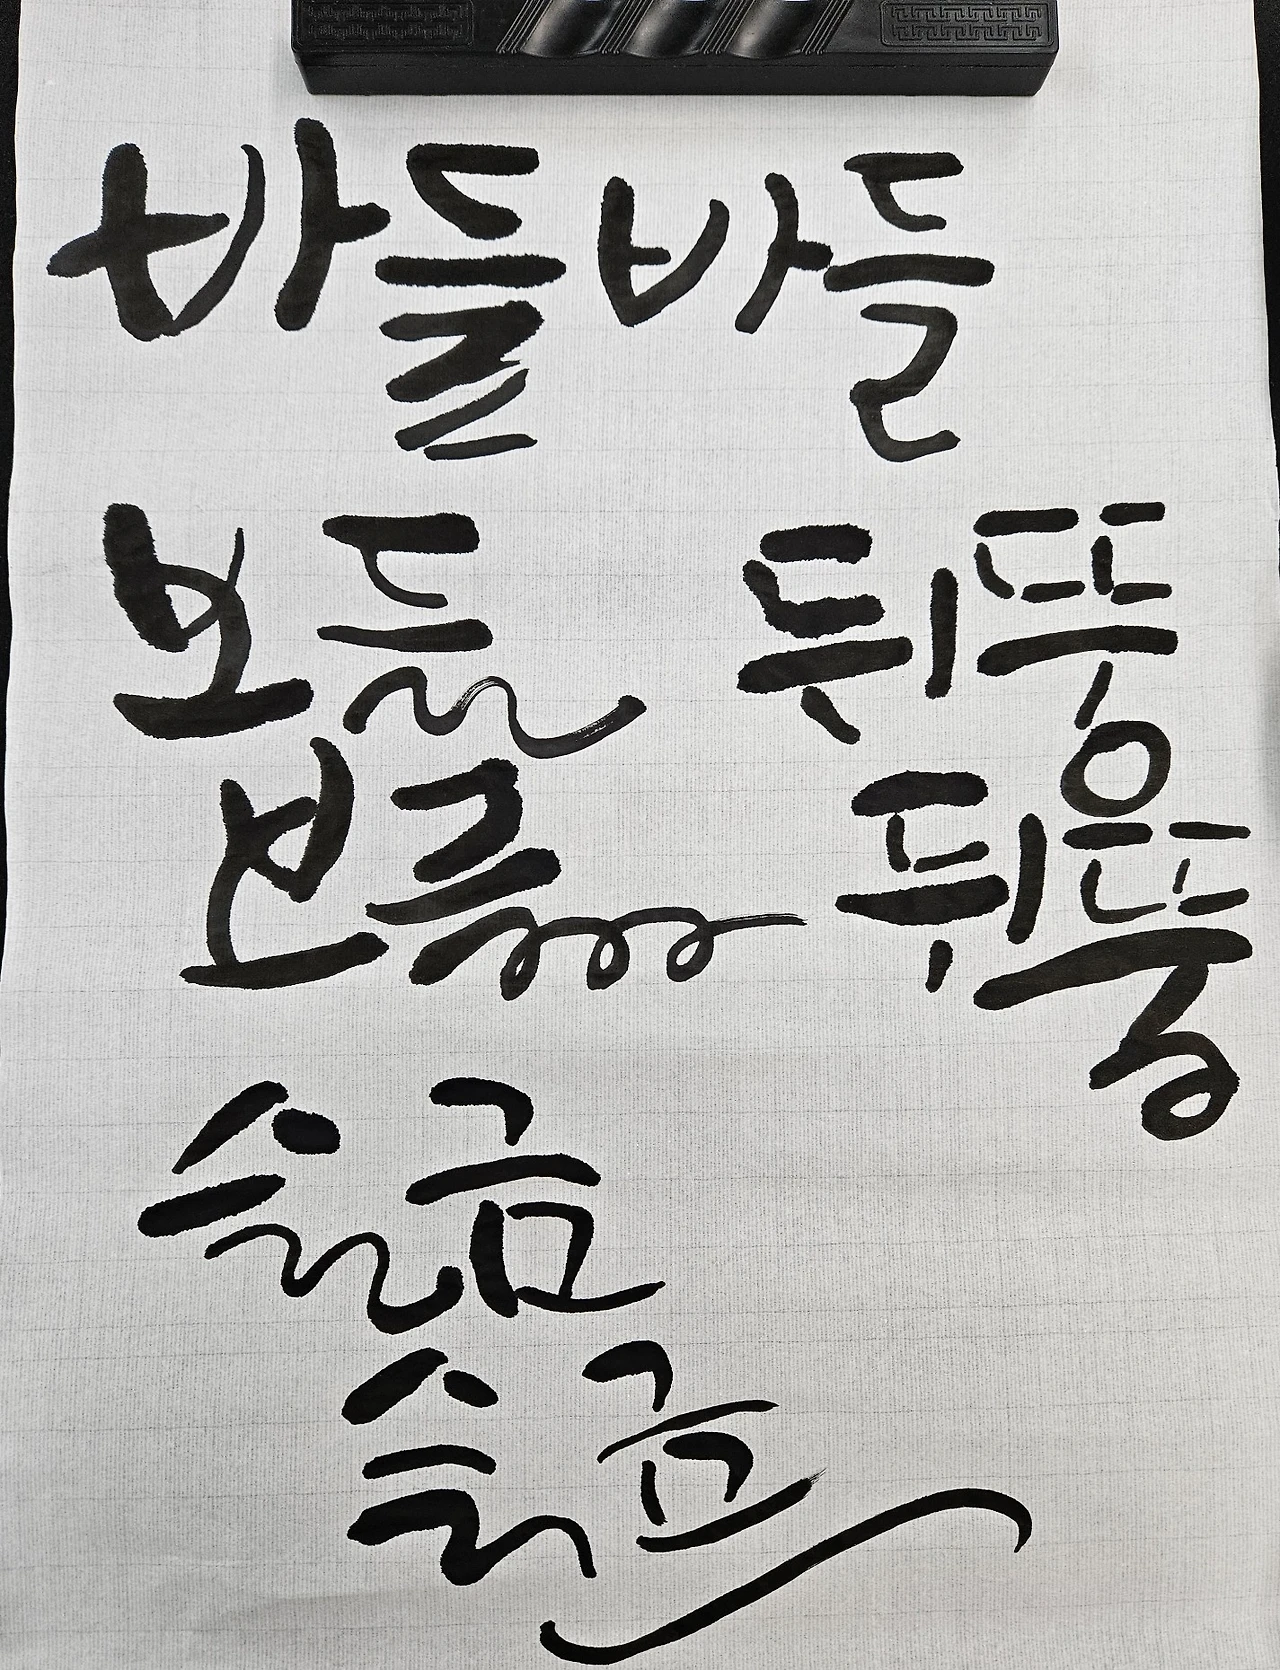 바들바들
보들
보들
뒤뚱
뒤뚱
슬금
슬금